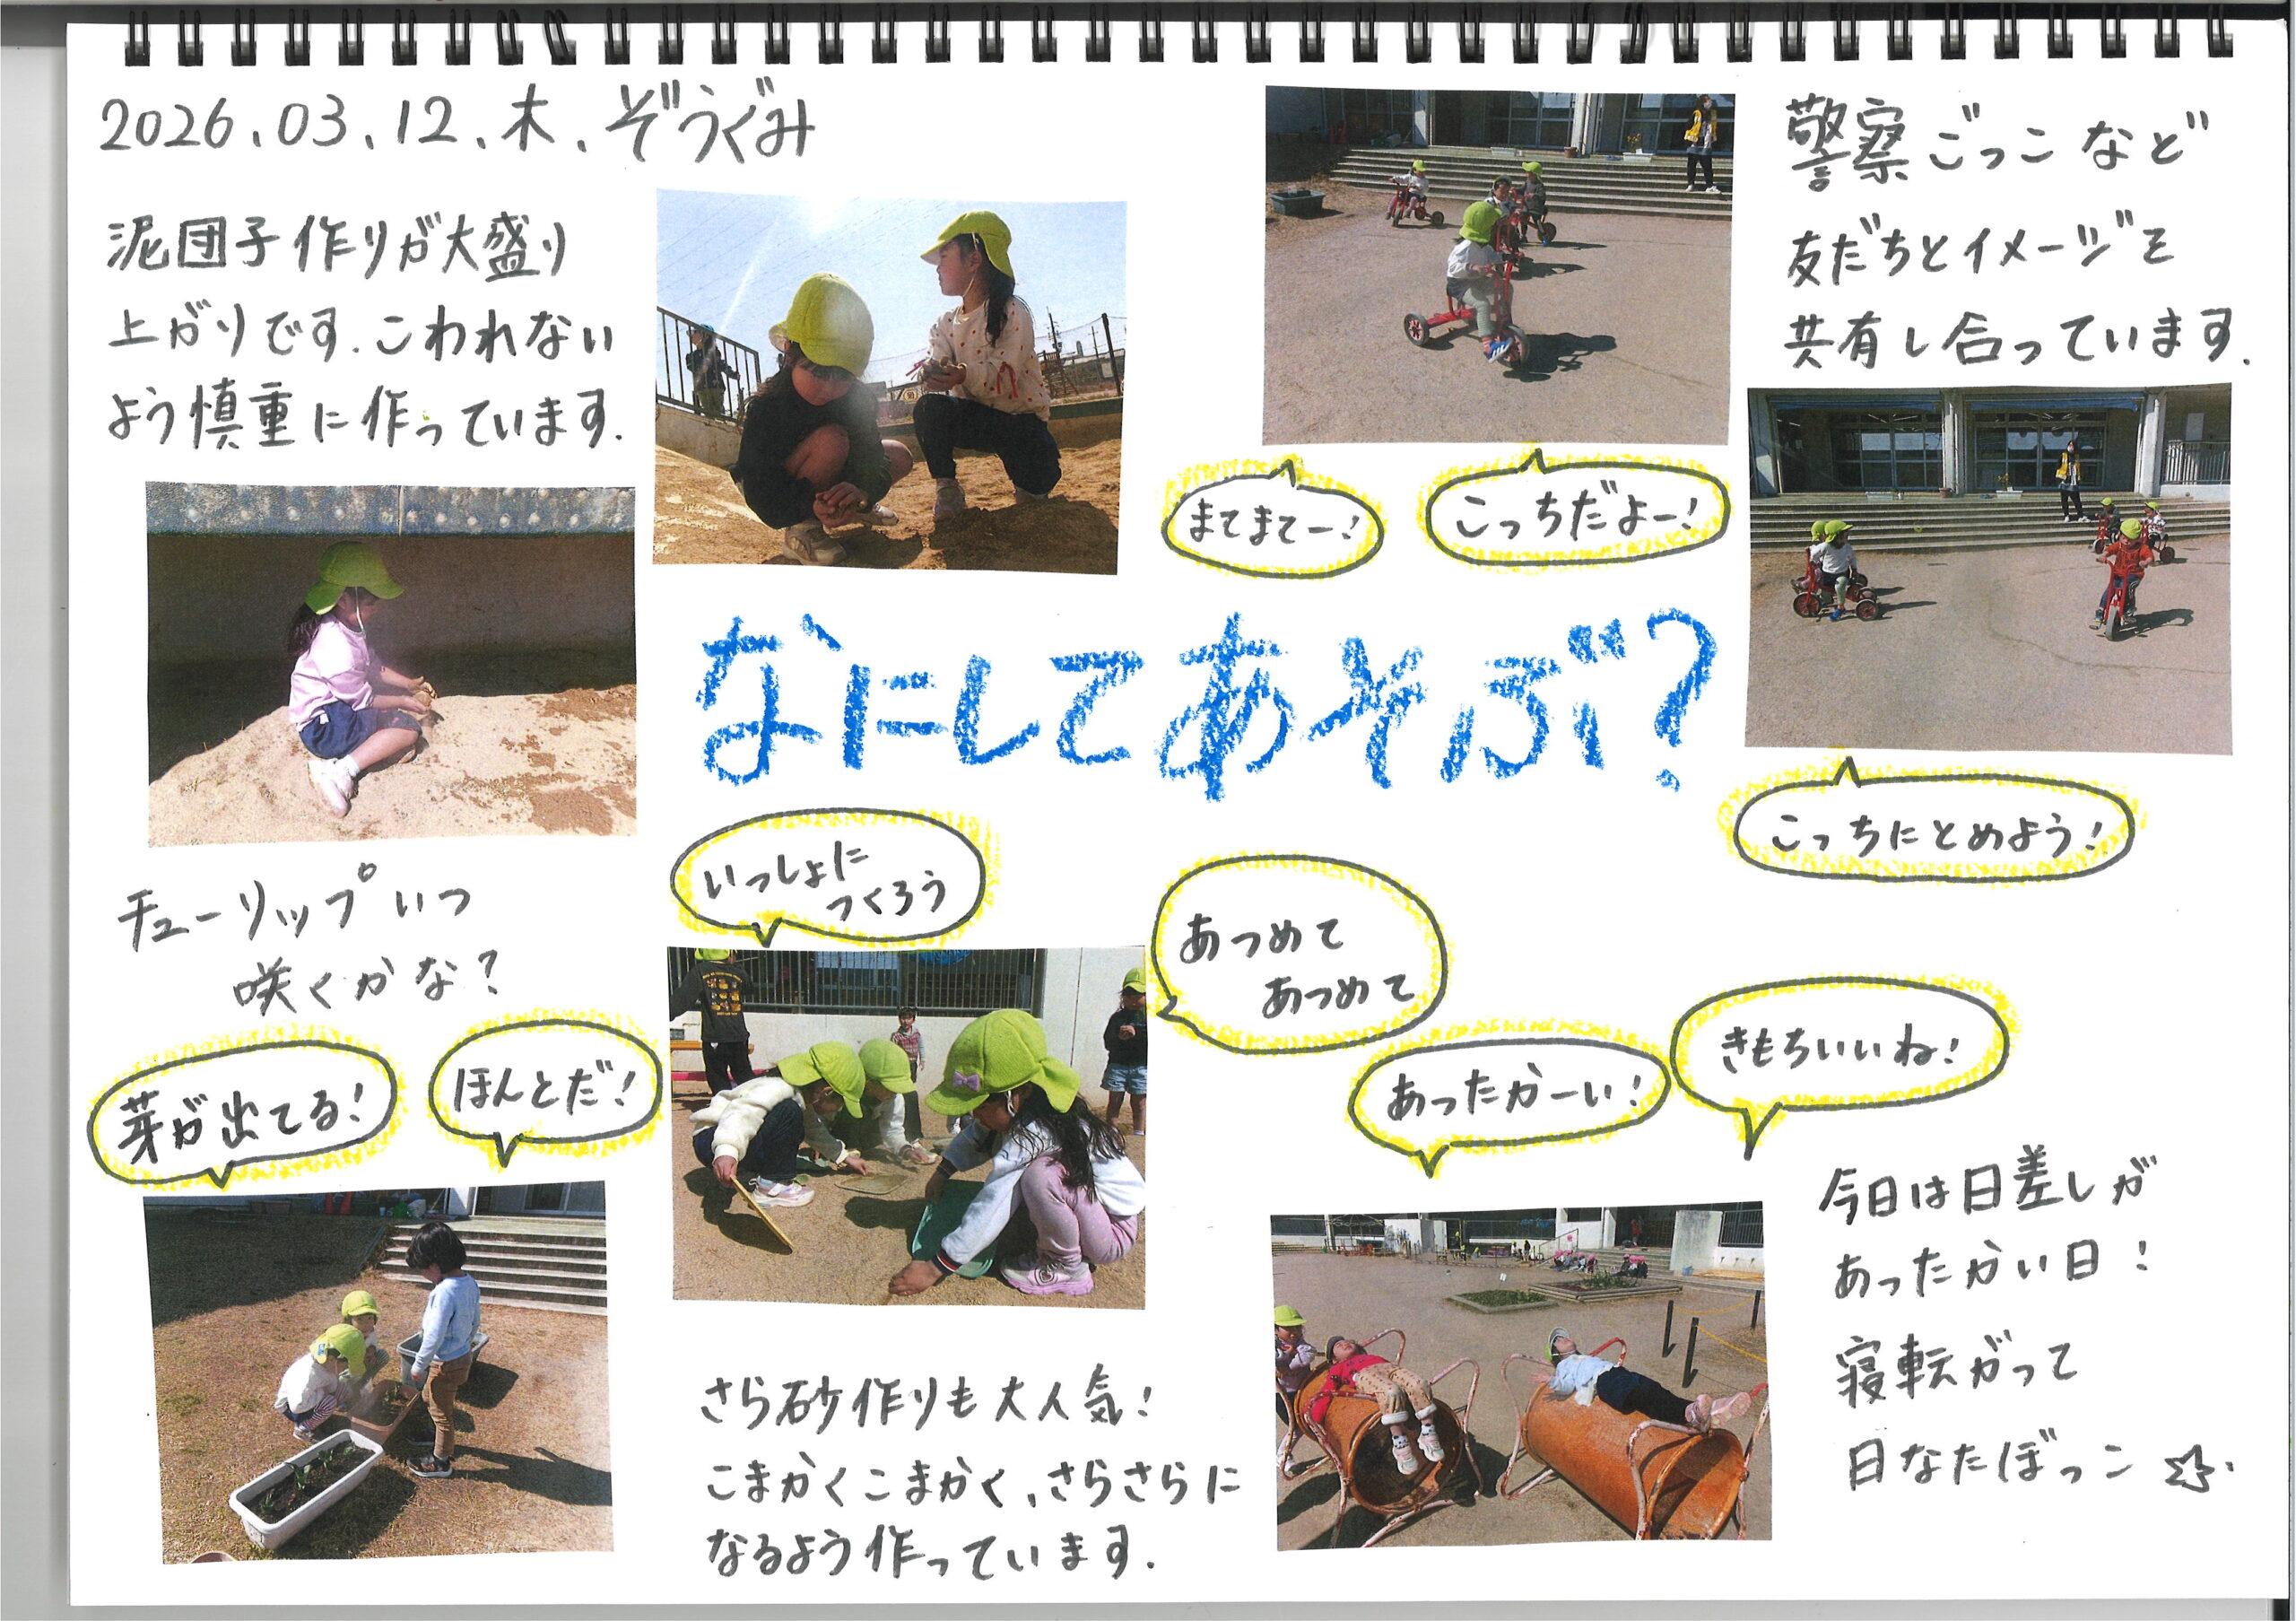 2026.03.12.木.ぞうぐみ
泥団子作りが大盛り
上がりです.こわれない
よう慎重に作っています.
警察ごっこなど
友だちとイメージを
共有し合っています.
まてまてー!
こっちだよー!
なにしてあそぶ?
こっちにとめよう!
チューリップいつ
咲くかな?
芽が出てる!
ほんとだ!
いっしょに
つくろう
あつめて
あつめて
あったかーい!
きもちいいね!
さら砂作りも大人気!
こまかくこまかく,さらさらに
なるよう作っています.
今日は日差しが
あったかい日!
寝転がって
日なたぼっこ☆.